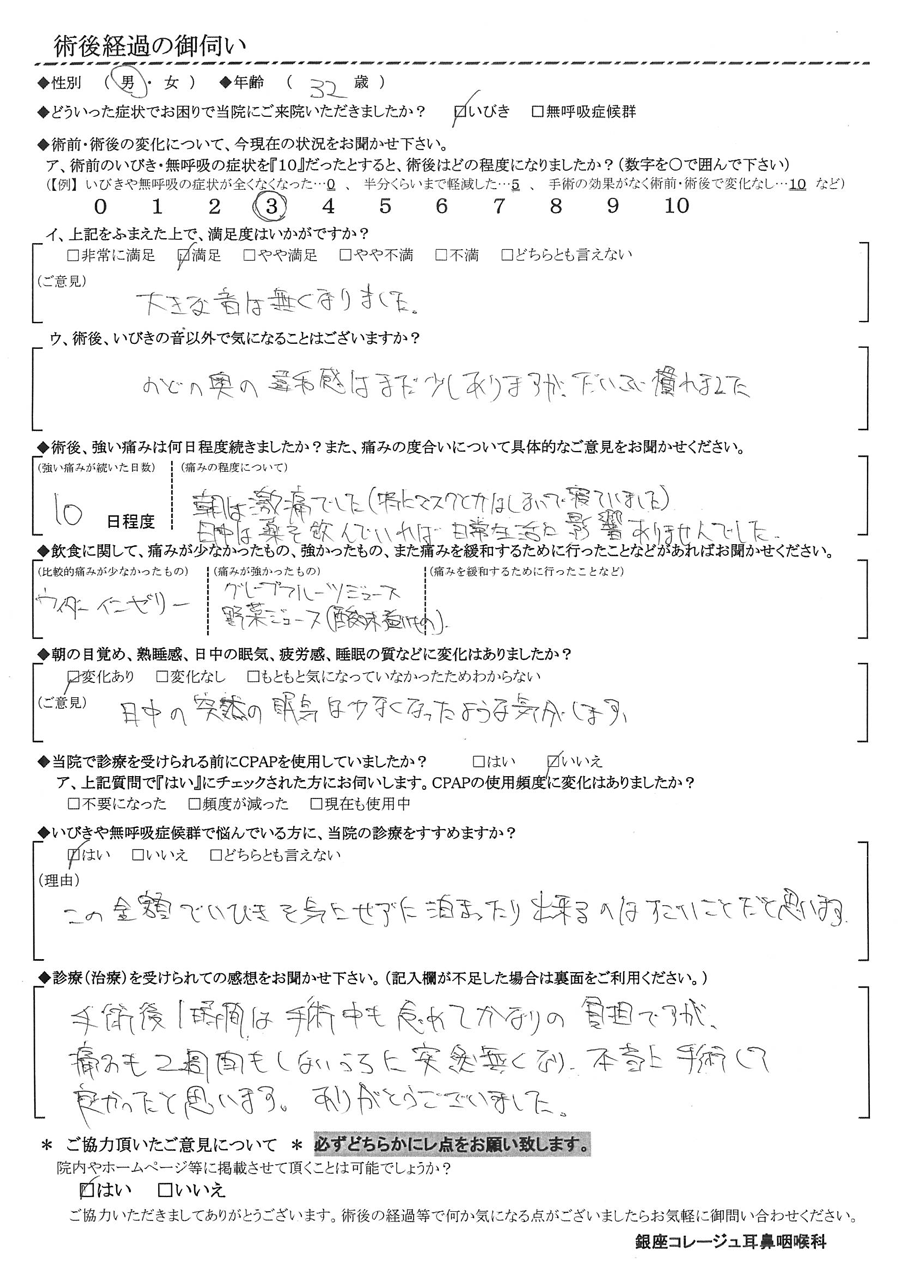 術後経過の御伺い
◆性別 （ 男 ・ 女 ） ◆年齢 （ 32 歳 ）
◆どういった症状でお困りで当院にご来院いただきましたか？ ☑いびき □無呼吸症候群
◆術前・術後の変化について、今現在の状況をお聞かせ下さい。
ア、術前のいびき・無呼吸の症状を『10』だったとすると、術後はどの程度になりましたか？（数字を○で囲んで下さい）
（【例】 いびきや無呼吸の症状が全くなくなった…0 、 半分くらいまで軽減した…5 、 手術の効果がなく術前・術後で変化なし…10 など）
0 1 2 3 4 5 6 7 8 9 10
イ、上記をふまえた上で、満足度はいかがですか？
□非常に満足 ☑満足 □やや満足 □やや不満 □不満 □どちらとも言えない
（ご意見）
大きな音は無くなりました。
ウ、術後、いびきの音以外で気になることはございますか？
のどの奥の違和感はまだ少しありますが、だいぶ慣れました
◆術後、強い痛みは何日程度続きましたか？また、痛みの度合いについて具体的なご意見をお聞かせください。
（強い痛みが続いた日数） （痛みの程度について）
10 日程度
朝は激痛でした（特にマスクとかはしないで寝ていました）
日中は薬を飲んでいれば日常生活に影響ありませんでした.
◆飲食に関して、痛みが少なかったもの、強かったもの、また痛みを緩和するために行ったことなどがあればお聞かせください。
（比較的痛みが少なかったもの） （痛みが強かったもの） （痛みを緩和するために行ったことなど）
ウィダーインゼリー
グレープフルーツジュース
野菜ジュース（酸味強いもの）.
◆朝の目覚め、熟睡感、日中の眠気、疲労感、睡眠の質などに変化はありましたか？
☑変化あり □変化なし □もともと気になっていなかったためわからない
（ご意見）
日中の突然の眠気は少なくなったような気がします、
◆当院で診療を受けられる前にCPAPを使用していましたか？ □はい ☑いいえ
ア、上記質問で『はい』にチェックされた方にお伺いします。CPAPの使用頻度に変化はありましたか？
□不要になった □頻度が減った □現在も使用中
◆いびきや無呼吸症候群で悩んでいる方に、当院の診療をすすめますか？
☑はい □いいえ □どちらとも言えない
（理由）
この金額でいびきを気にせずに泊まったり出来るのはすごいことだと思います.
◆診療（治療）を受けられての感想をお聞かせ下さい。（記入欄が不足した場合は裏面をご利用ください。）
手術後1時間は手術中も含めてかなりの負担ですが、
痛みも2週間もしないうちに突然無くなり、本当に手術して
良かったと思います。ありがとうございました。
＊ ご協力頂いたご意見について ＊ 必ずどちらかにレ点をお願い致します。
院内やホームページ等に掲載させて頂くことは可能でしょうか？
☑はい □いいえ
ご協力いただきましてありがとうございます。術後の経過等で何か気になる点がございましたらお気軽に御問い合わせください。
銀座コレージュ耳鼻咽喉科